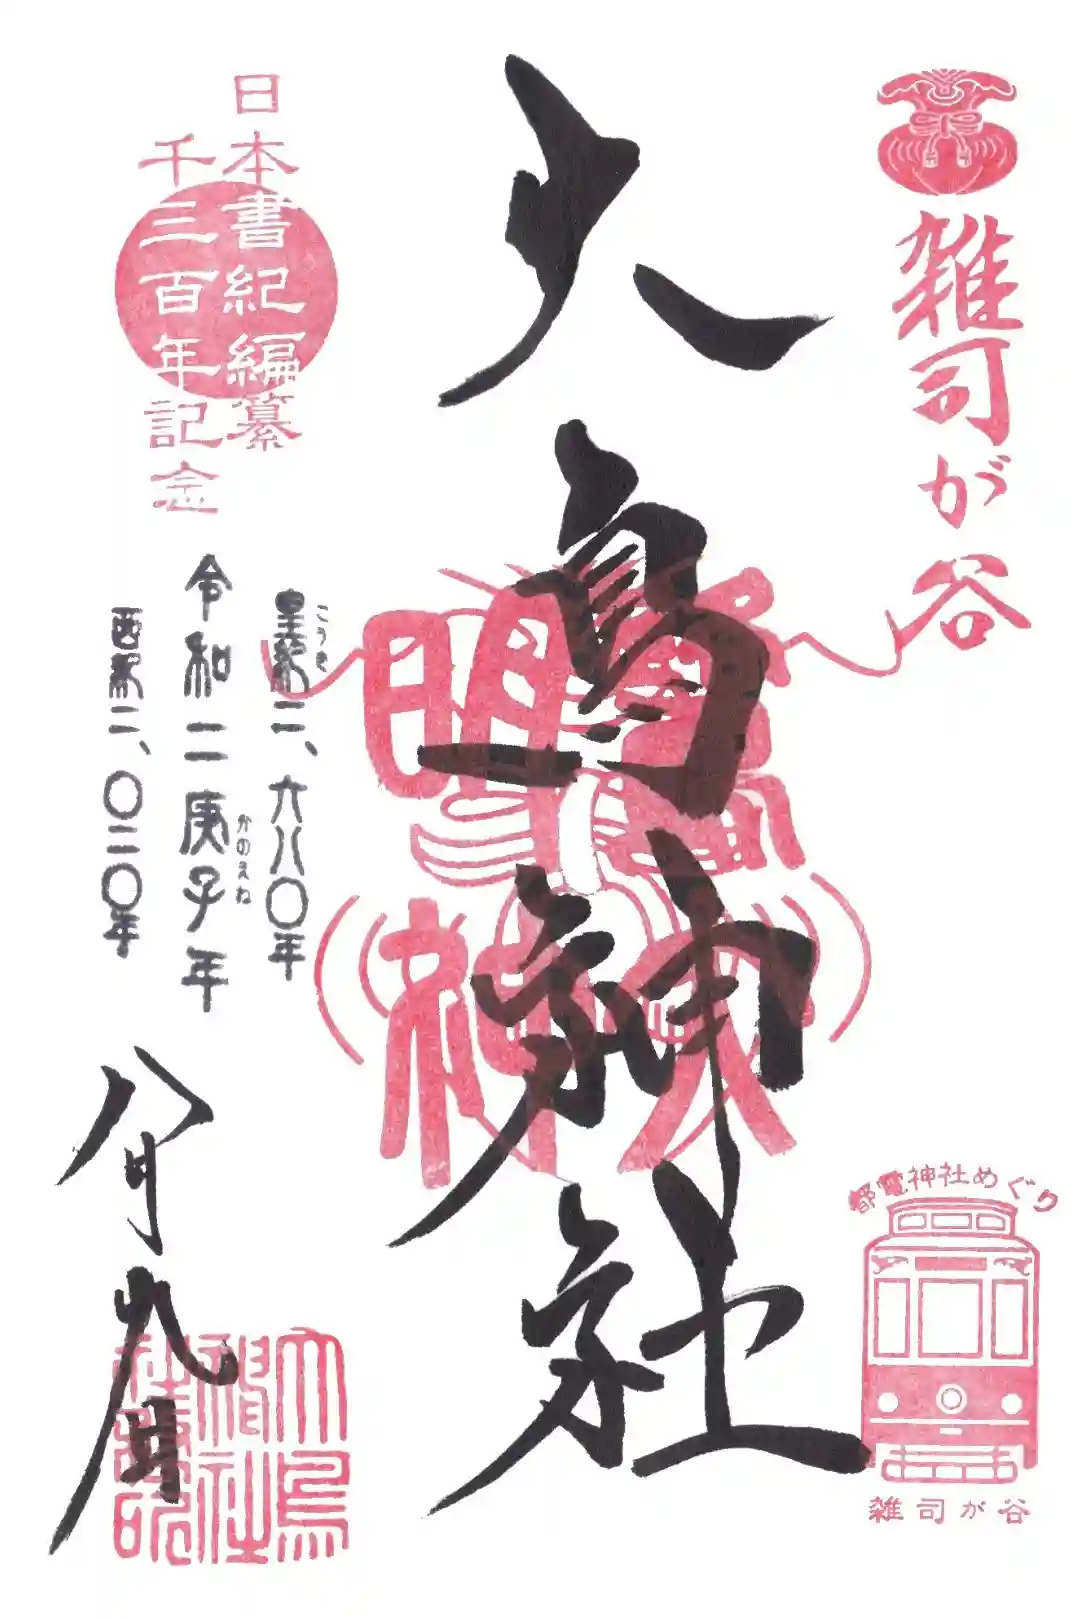 雑司が谷
大鳥神社
日本書紀編纂
千三百年記念
皇紀二、六八〇年
こうき
令和二庚子年
かのえね
西紀二、〇二〇年
八月九日
大鳥
神社
都電神社めぐり
雑司が谷